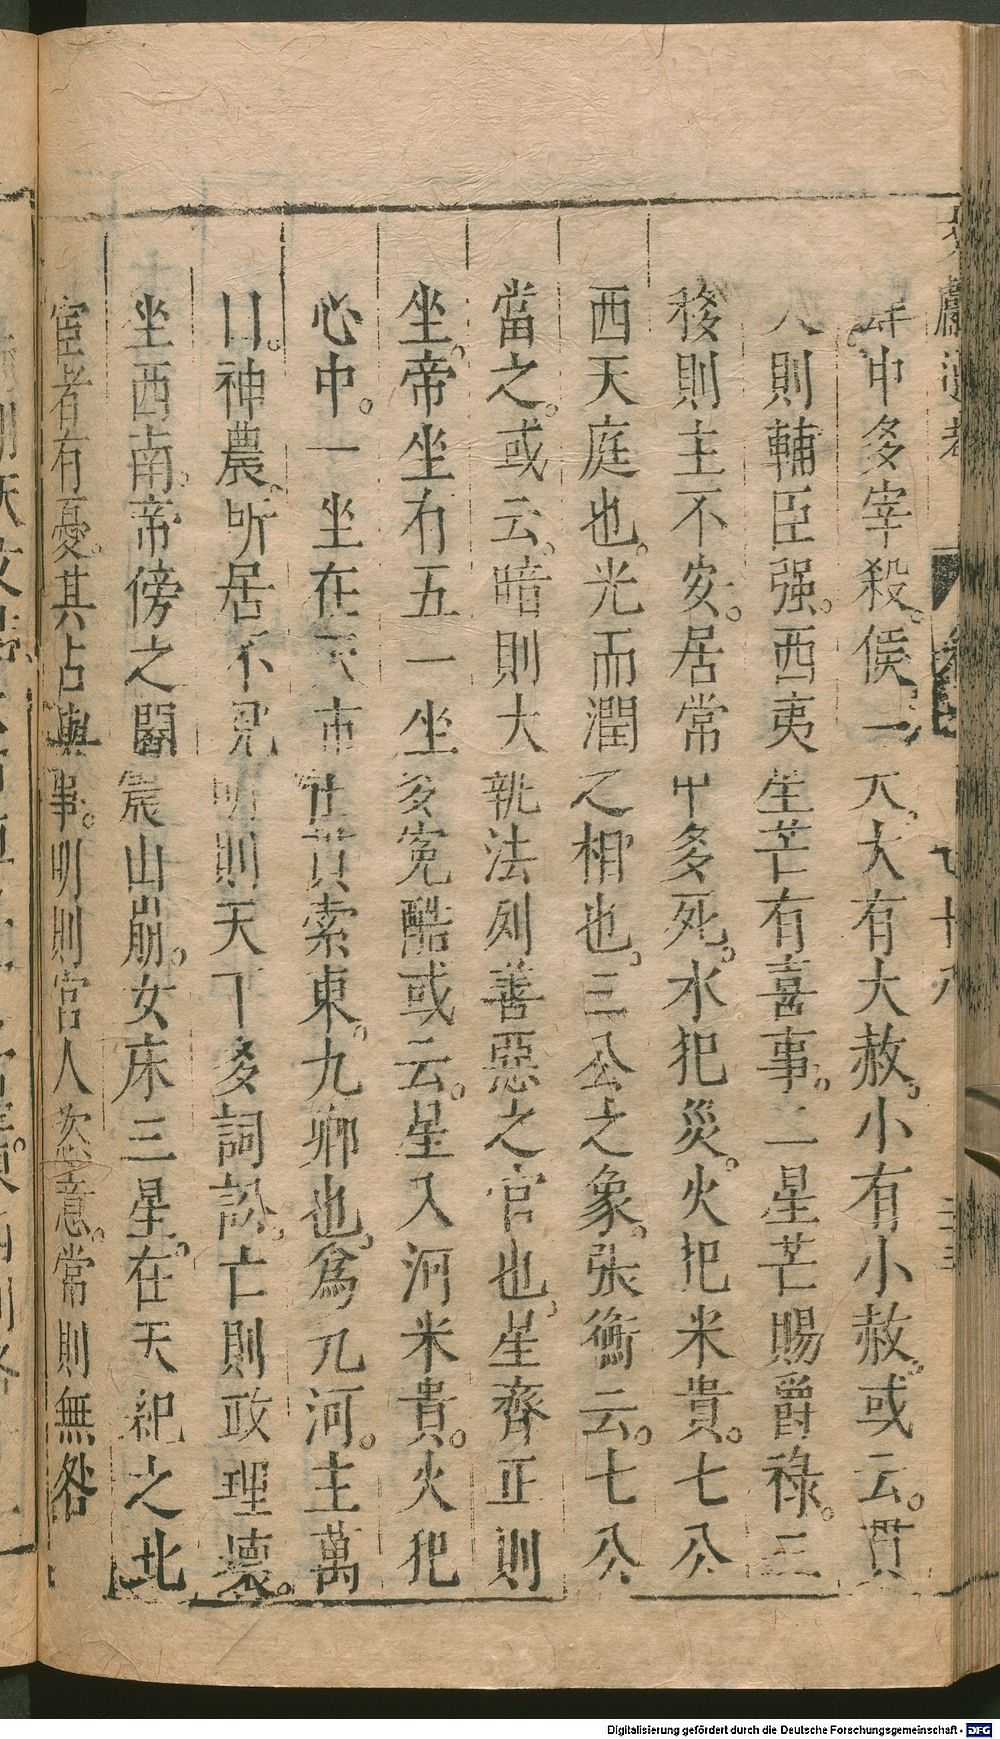 文獻通考
七十八
肆中多宰殺。侯一天大有大赦。小有小赦。或云。貫
入則輔臣强。西夷星芒有喜事。二星芒賜爵祿。三
移則主不安。居常中多死。水犯災。火犯米貴。七公
西天庭也。光而潤之相也。三公之象。張衡云。七公
當之。或云。暗則大執法列善惡之官也。星齊正則
坐。帝坐有五一坐多寃酷或云。星入河米貴。火犯
心中。一坐在天市在貫索東。九卿也。爲九河。主萬
曰。神農所居不見明則天下多詞訟。亡則政理壞。
坐西南。帝傍之閹震山崩。女床三星。在天紀之北
宦者有憂。其占與事。明則宮人恣意。常則無咎
Digitalisierung gefördert durch die Deutsche Forschungsgemeinschaft - DFG